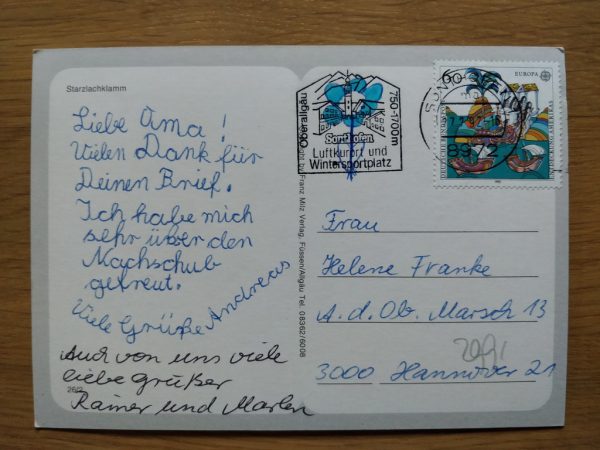 Starzlachklamm
Liebe Ama!
Vielen Dank für
Deinen Brief.
Ich habe mich
sehr über den
Nachschub
gefreut.
Viele Grüße Andreas
Auch von uns viele
liebe Grüße
Rainer und Marlen
26/2
Oberallgäu
750-1700m
Sonthofen
Luftkurort und
Wintersportplatz
60
EUROPA
DEUTSCHE BUNDESPOST
Franz Milz Verlag, Füssen/Allgäu Tel. 08362/6008
Frau
Helene Franke
A. d. Ob. Marsch 13
3000 Hannover 21